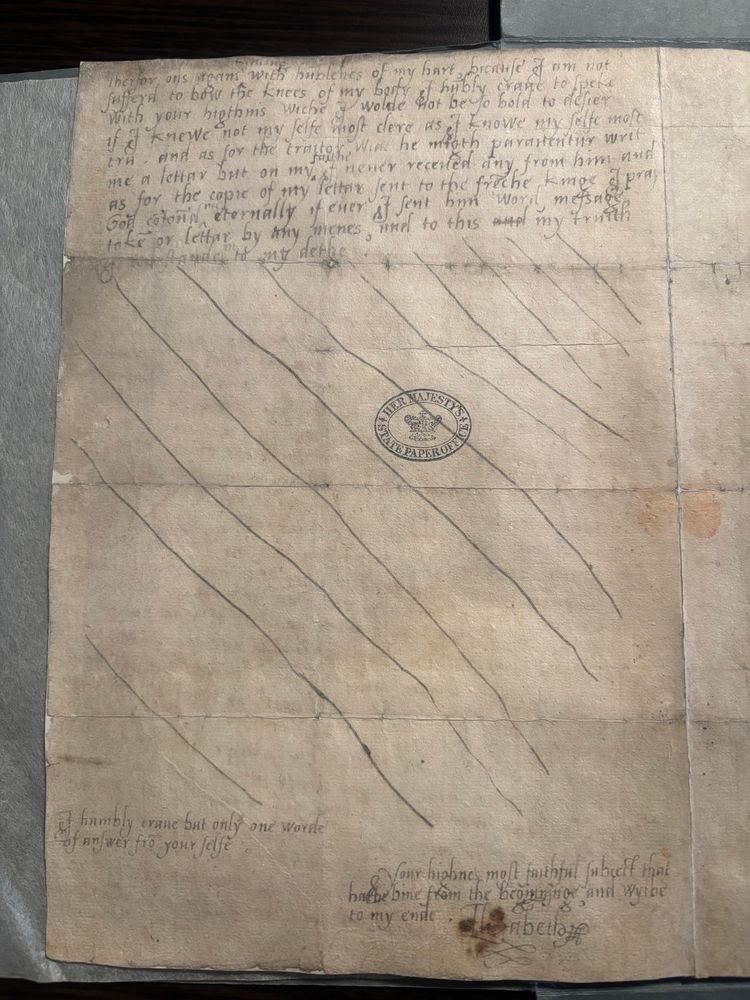 therfor ons again with hublenes of my hart, bicause I am not
sufferd to bow the knees of my body I hubly crave to speke
with your higthnis wiche I wolde not be so bold to desier
if I knewe not my selfe most clere as I knowe my selfe most
tru. and as for the traitor Wiat he migth paraventur writ
me a lettar but on my faithe I never receved any from him and
as for the copie of my lettar sent to the freche kinge I pray
God confound me eternally if ever I sent him word, message,
token or lettar by any menes, and to this and my truith
I stande to my dethe.
HER MAJESTY'S
STATE PAPER OFFICE
I humbly crave but only one worde
of answer fro your selfe
Your highnes most faithful subject that
hathe bine from the beginninge, and wylbe
to my ende.
Elizabeth